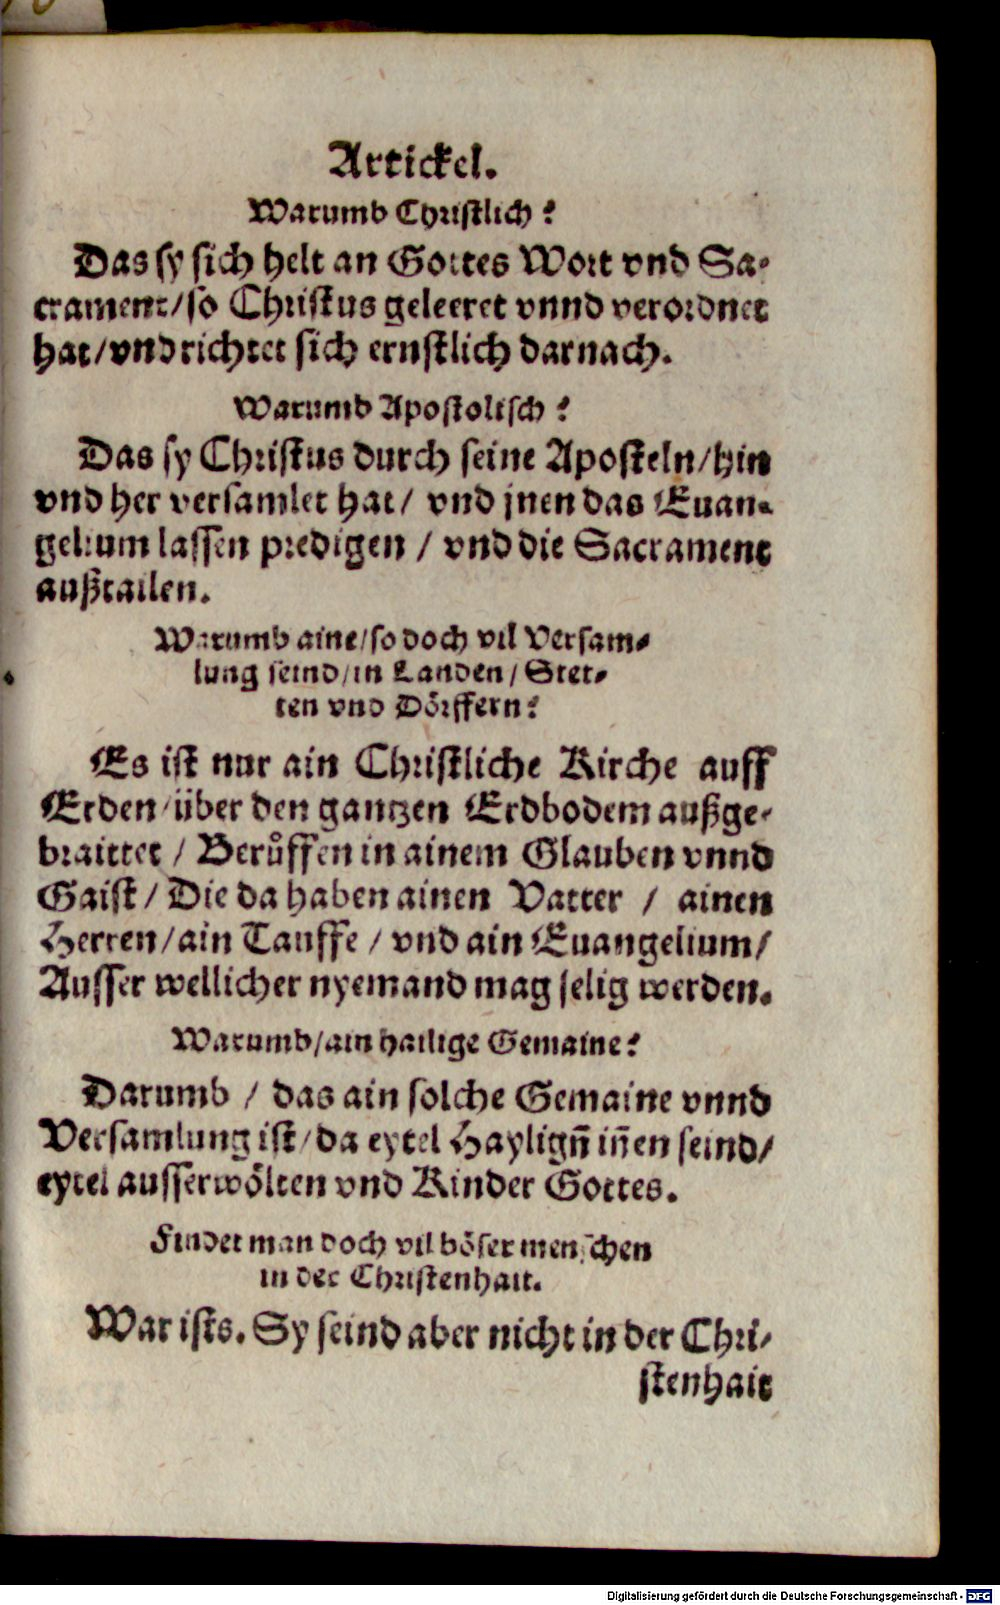 Artickel.
Warumb Christlich?
Das sy sich helt an Gottes Wort vnd Sa-
crament/so Christus geleeret vnnd verordnet
hat/vnd richtet sich ernstlich darnach.
Warumb Apostolisch?
Das sy Christus durch seine Aposteln/hin
vnd her versamlet hat/ vnd jnen das Euan-
gelium lassen predigen / vnd die Sacrament
außtailen.
Warumb aine/so doch vil Versam-
lung seind/in Landen/ Stet-
ten vnd Dörffern?
Es ist nur ain Christliche Kirche auff
Erden/über den gantzen Erdbodem außge-
braittet / Berůffen in ainem Glauben vnnd
Gaist/ Die da haben ainen Vatter / ainen
Herren/ain Tauffe / vnd ain Euangelium/
Ausser wellicher nyemand mag selig werden.
Warumb/ain hailige Gemaine?
Darumb / das ain solche Gemaine vnnd
Versamlung ist/da eytel Hayligñ iñen seind/
eytel ausserwölten vnd Kinder Gottes.
Findet man doch vil böser menschen
in der Christenhait.
War ists. Sy seind aber nicht in der Chri-
stenhait
Digitalisierung gefördert durch die Deutsche Forschungsgemeinschaft - DFG